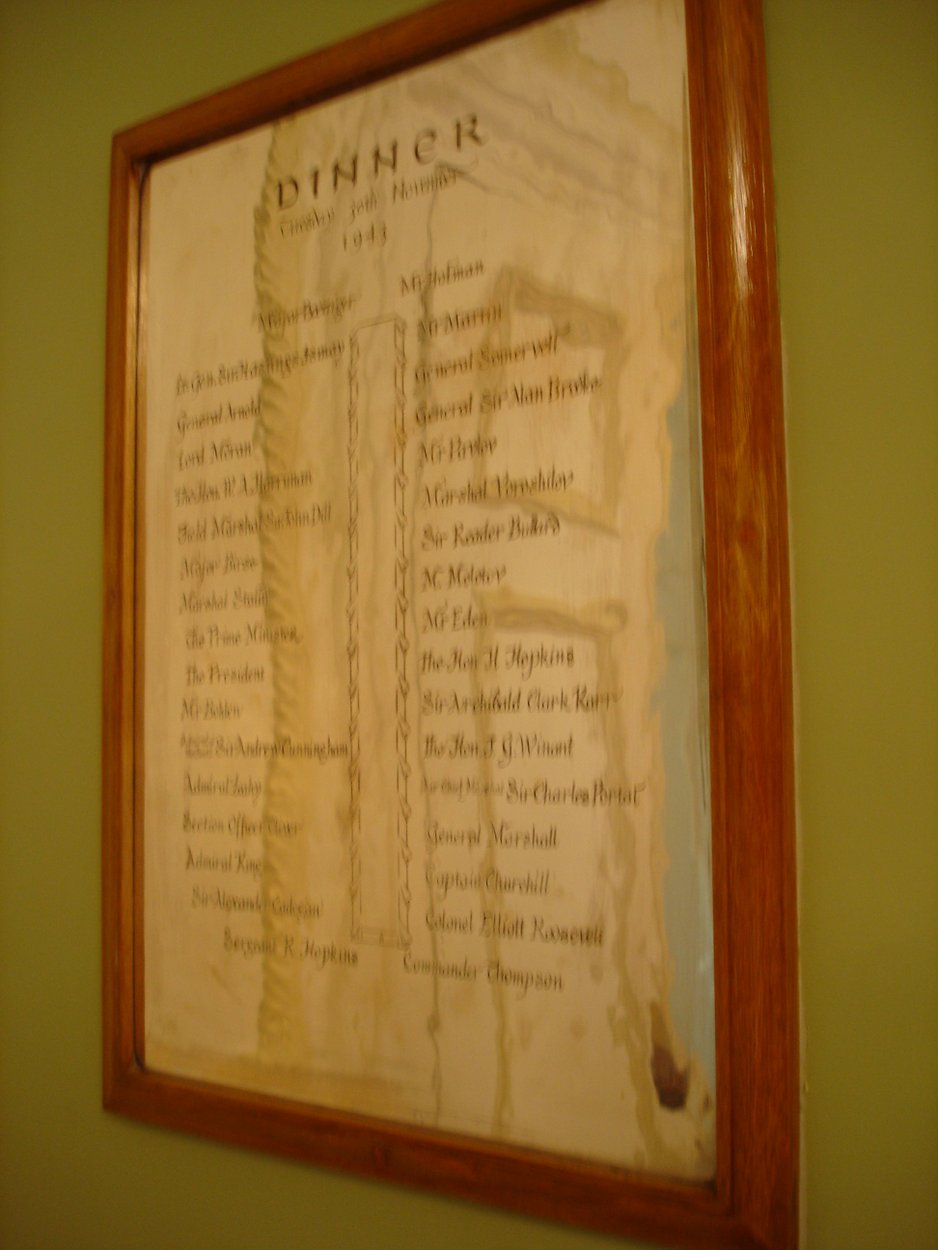 DINNER
Tuesday 30th November
1943
Mr Holman
Major Beringer
Mr Martin
Lt. Gen. Sir Hastings Ismay
General Somervell
General Arnold
General Sir Alan Brooke
Lord Moran
Mr Pavlov
The Hon. W. A. Harriman
Marshal Voroshilov
Field Marshal Sir John Dill
Sir Reader Bullard
Major Birse
M. Molotov
Marshal Stalin
Mr Eden
The Prime Minister
The Hon H Hopkins
The President
Sir Archibald Clark Karr
Mr Bohlen
The Hon J. G. Winant
Sir Andrew Cunningham
Air Chief Marshal Sir Charles Portal
Admiral Leahy
General Marshall
Section Officer Oliver
Captain Churchill
Admiral King
Colonel Elliott Roosevelt
Sir Alexander Cadogan
Sergeant R. Hopkins
Commander Thompson